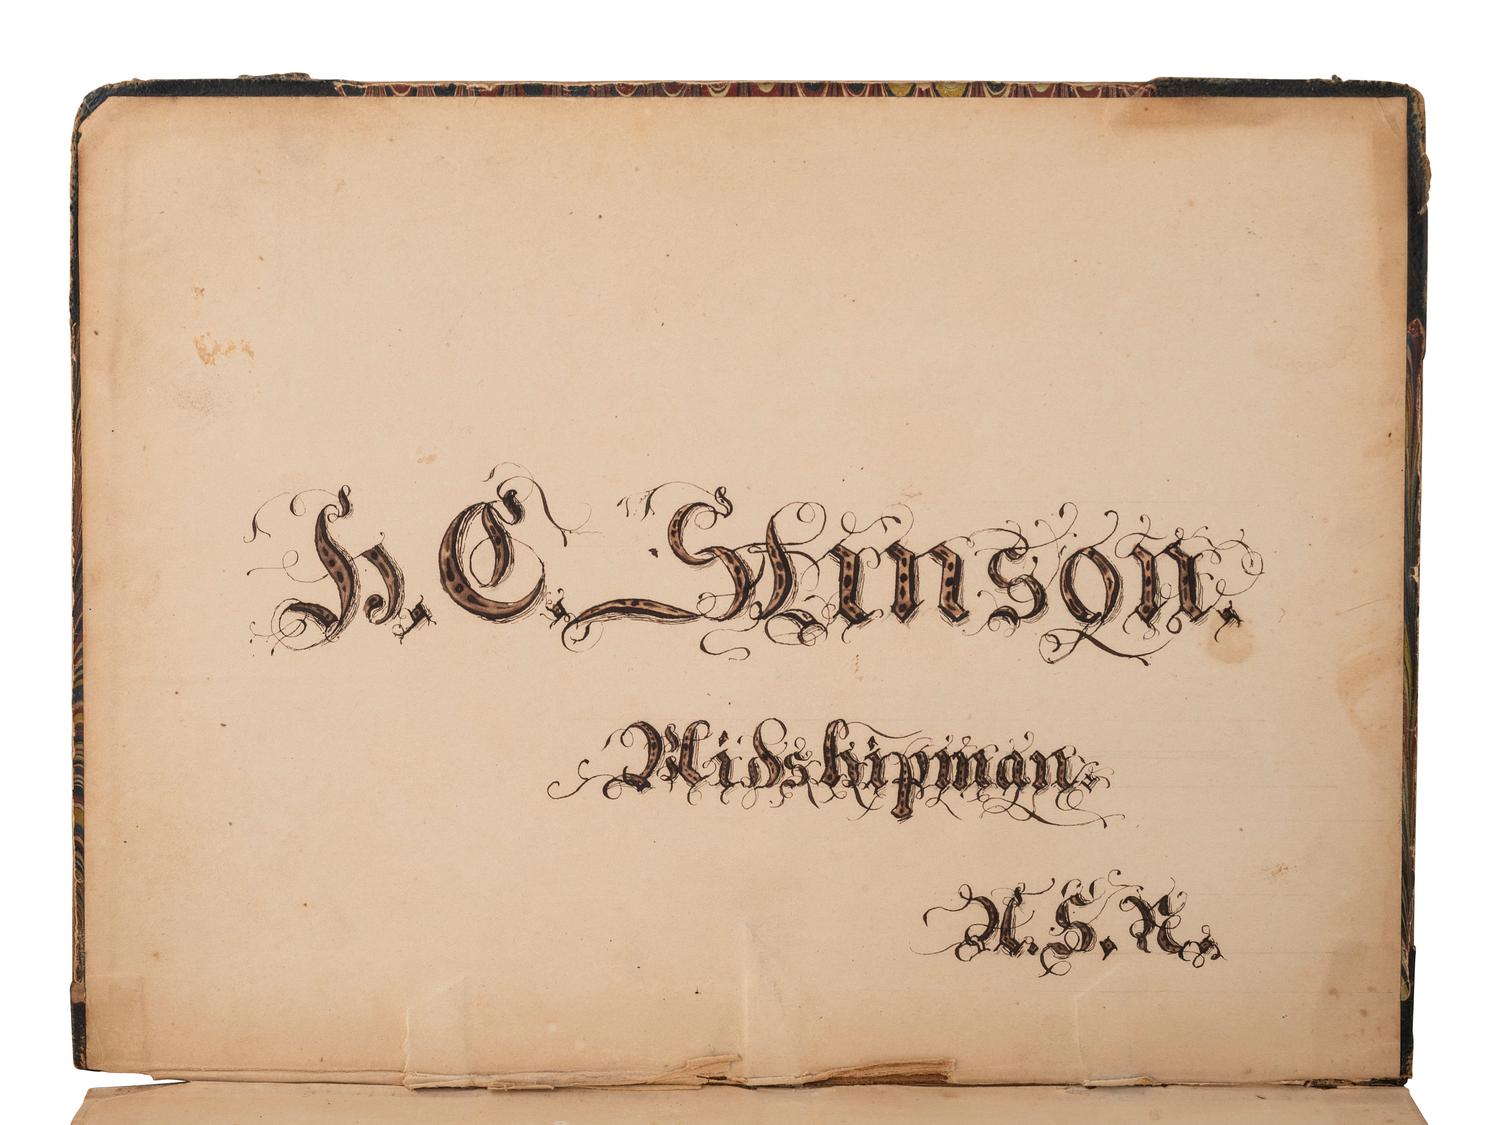 H. C. Stinson.
Midshipman.
U.S.N.